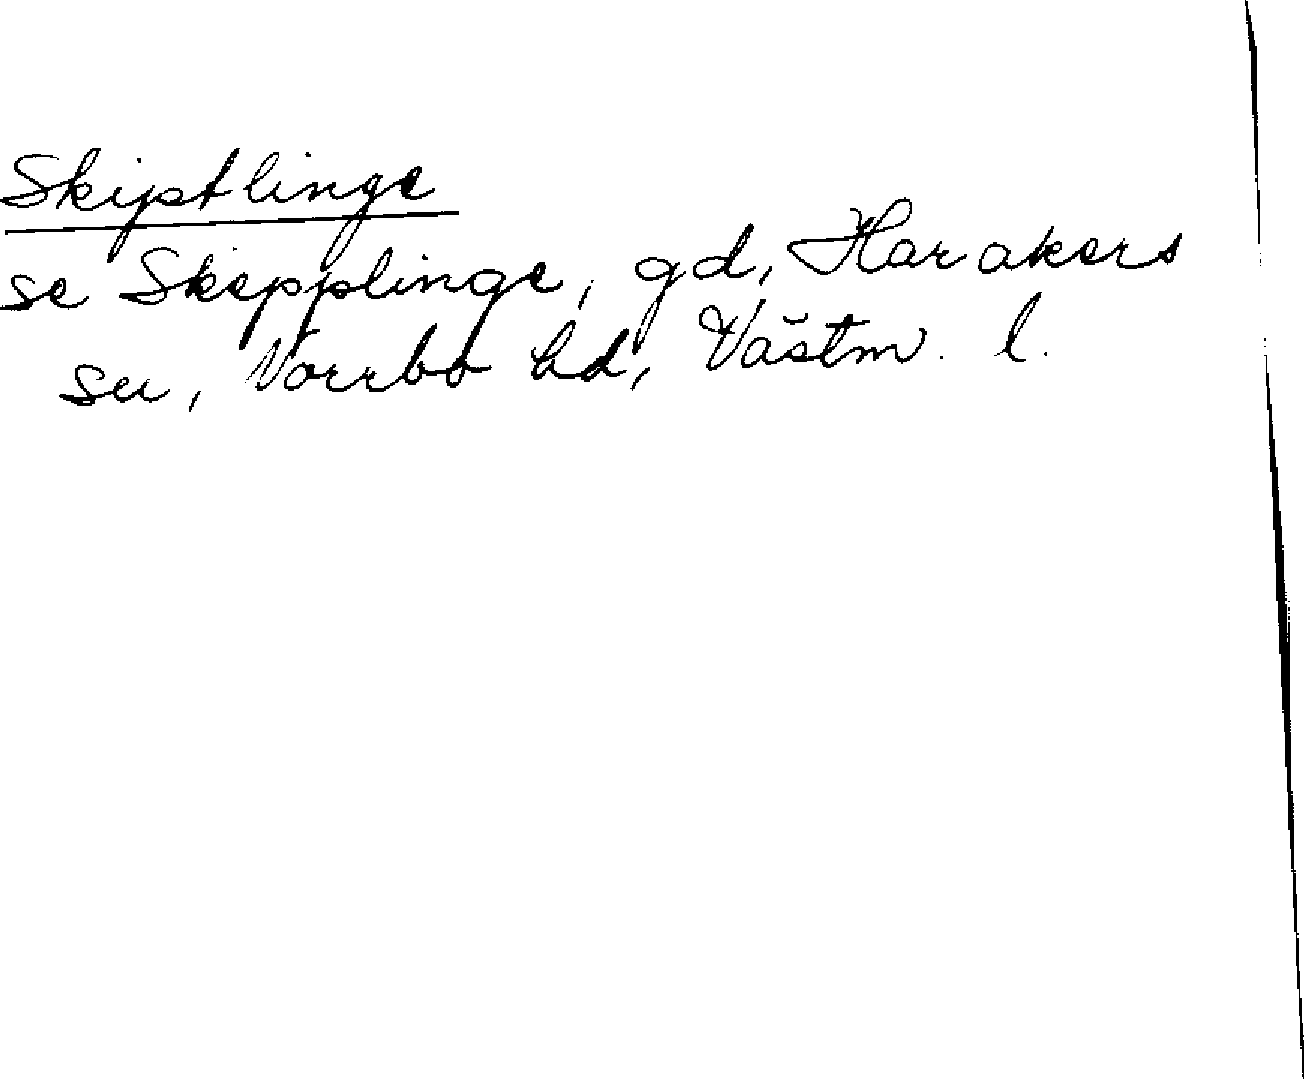 Skipstlinge
se Skepplinge, gd, Harakers
sn, Norrbo hd, Västm. l.